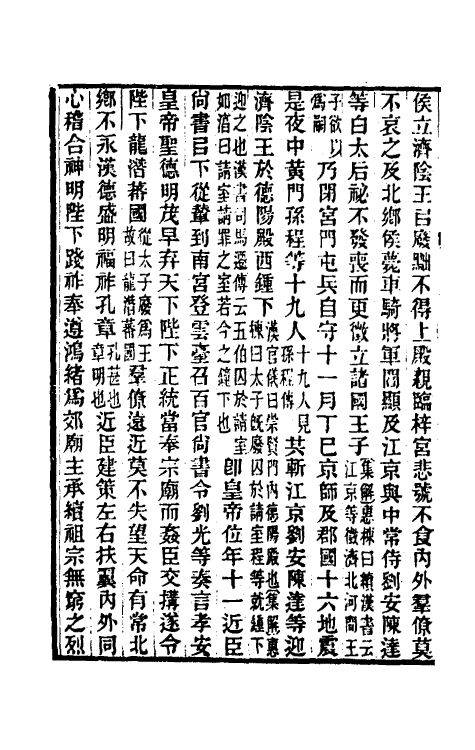 侯立濟陰王㠯廢黜不得上殿親臨梓宮悲號不食內外羣僚莫
不哀之及北鄉侯薨車騎將軍閻顯及江京與中常侍劉安陳達
等白太后祕不發喪而更徵立諸國王子集解惠棟曰續漢書云江京等徵濟北河間王
子欲以爲嗣乃閉宮門屯兵自守十一月丁巳京師及郡國十六地震
是夜中黃門孫程等十九人十九人見孫程傳共斬江京劉安陳達等迎
濟陰王於德陽殿西鍾下漢官儀曰崇賢門內德陽殿也集解惠棟曰太子旣廢囚於請室程等就鍾下
迎之也漢書司馬遷傳云五伯囚於請室如淳曰請室請罪之室若今之鍾下也卽皇帝位年十一近臣
尙書㠯下從輦到南宮登雲臺召百官尙書令劉光等奏言孝安
皇帝聖德明茂早弃天下陛下正統當奉宗廟而姦臣交搆遂令
陛下龍潛蕃國從太子廢爲王故曰龍潛蕃國羣僚遠近莫不失望天命有常北
鄉不永漢德盛明福祚孔章孔甚也章明也近臣建策左右扶翼內外同
心稽合神明陛下踐祚奉遵鴻緒爲郊廟主承續祖宗無窮之烈